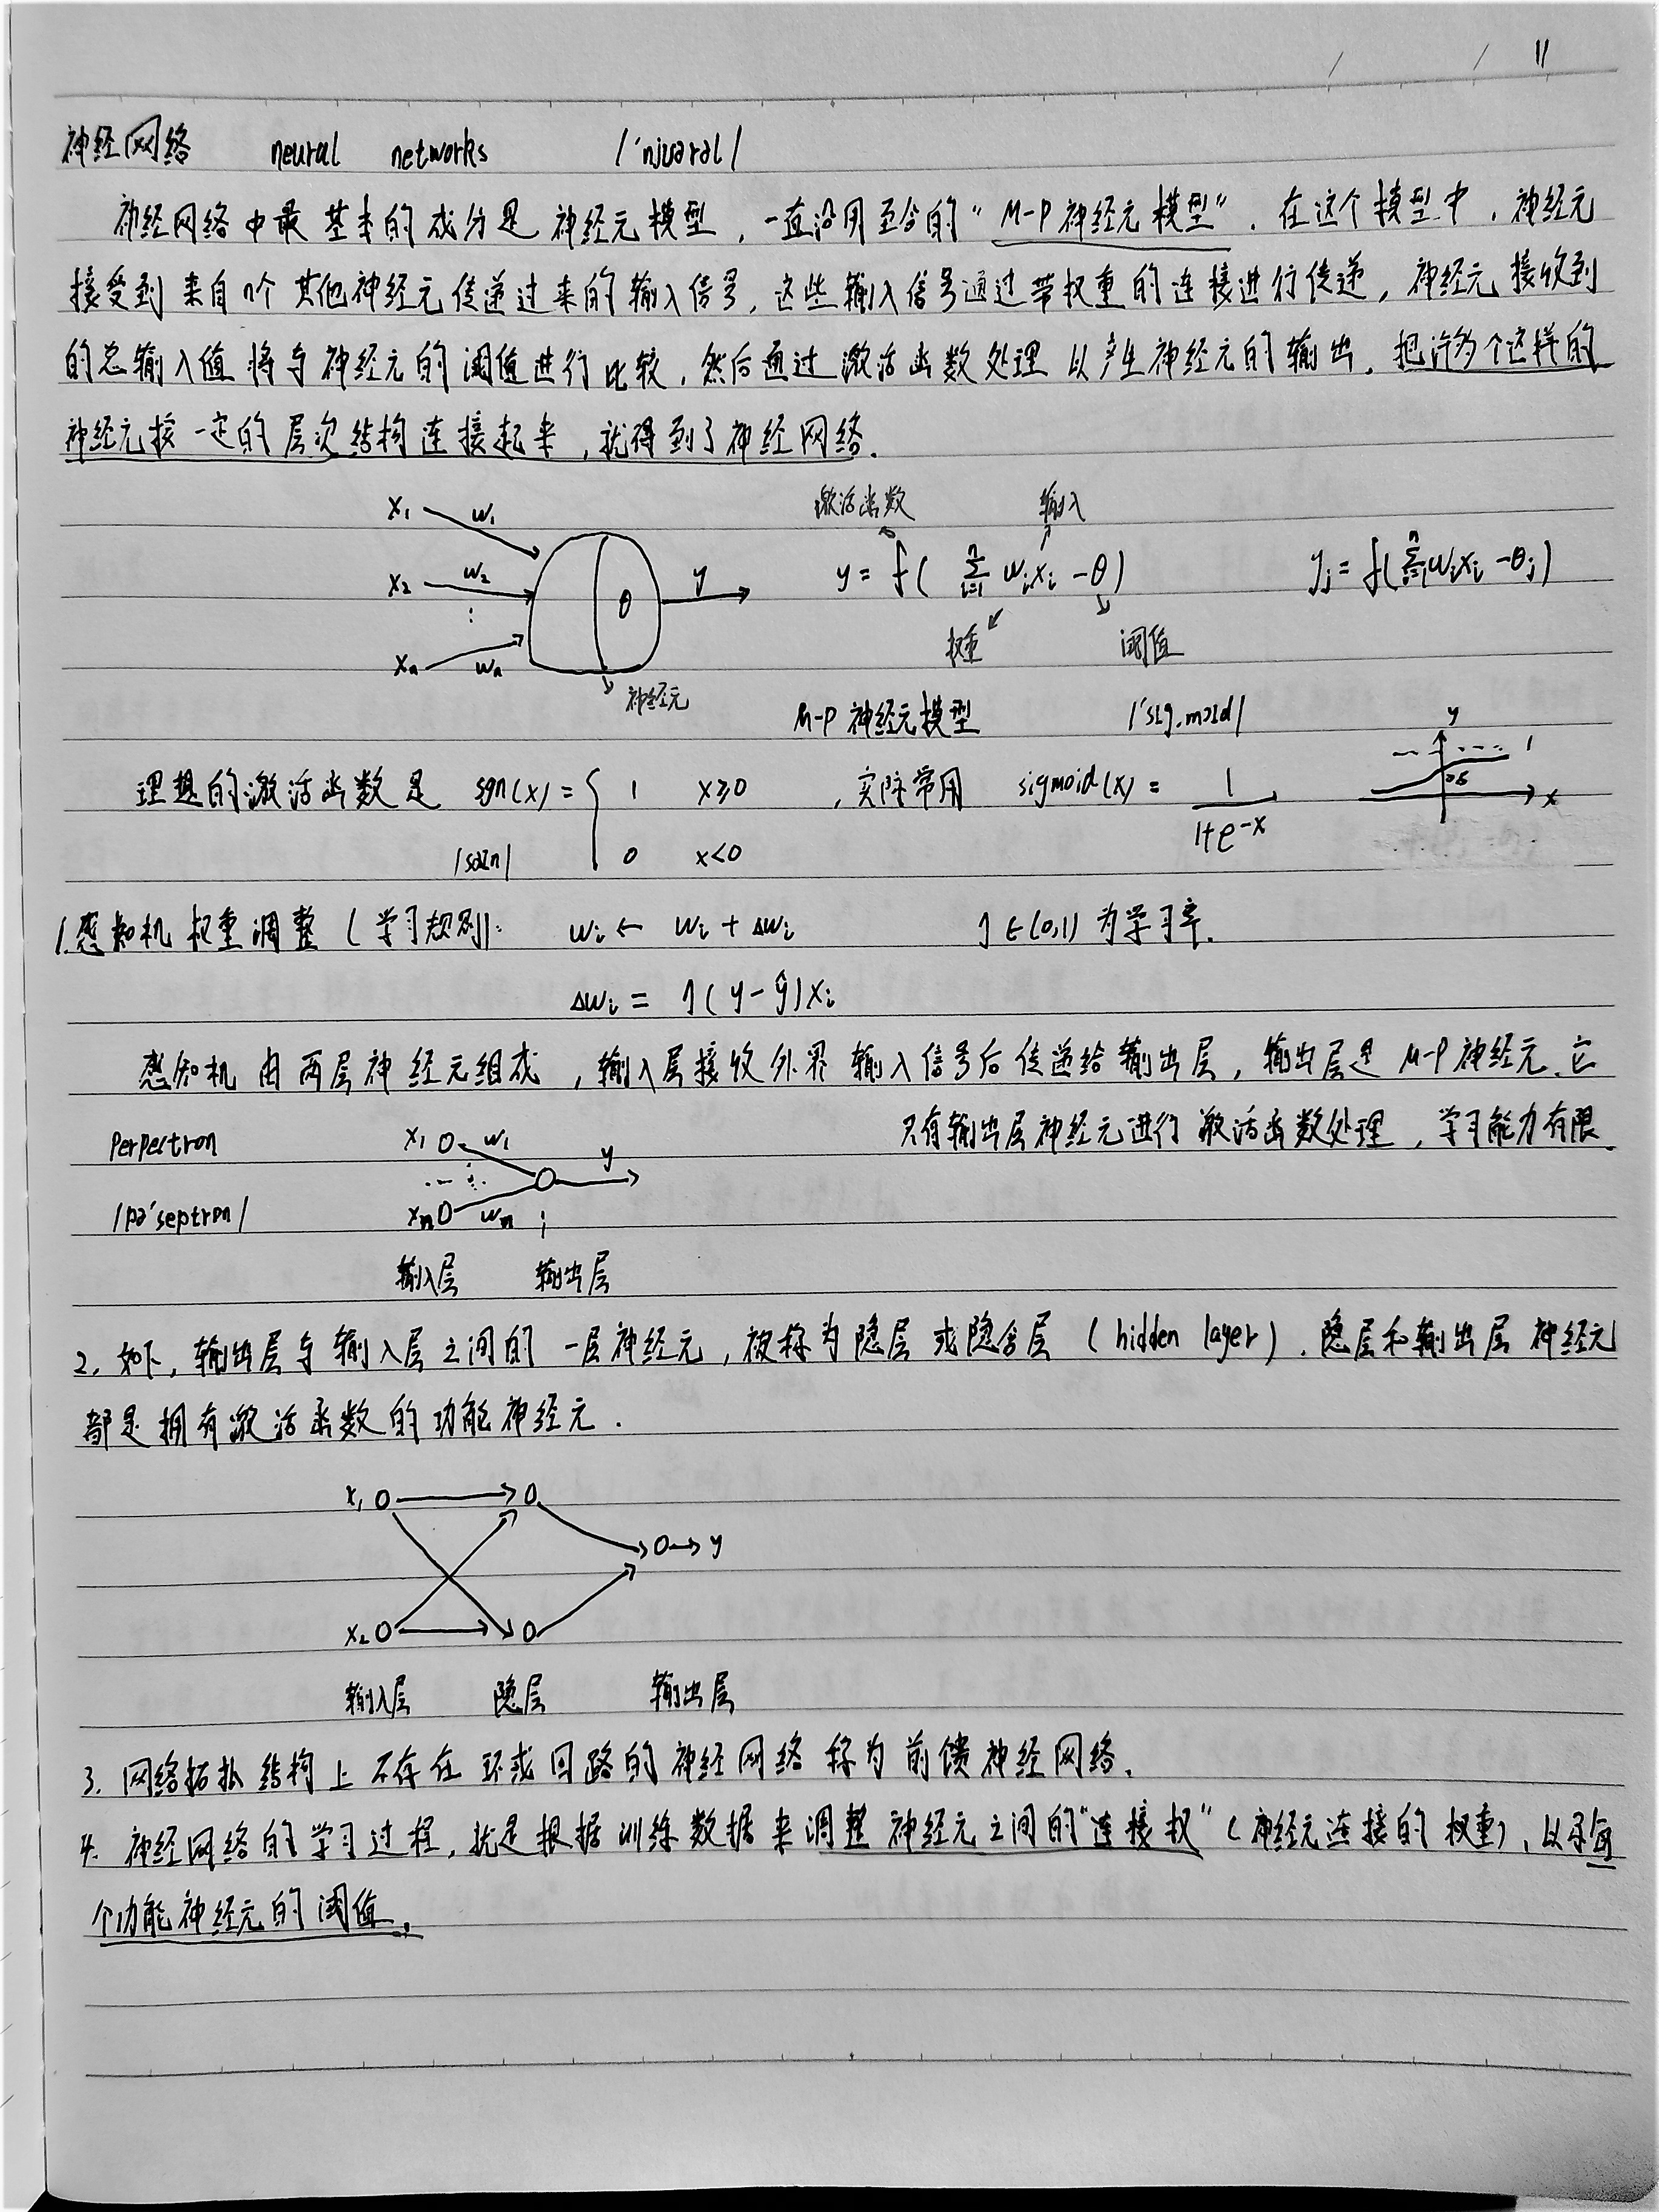 11
神经网络 neural networks /'njʊərəl/
神经网络中最基本的成分是神经元模型，一直沿用至今的“M-P神经元模型”。在这个模型中，神经元
接受到来自n个其他神经元传递过来的输入信号，这些输入信号通过带权重的连接进行传递，神经元接收到
的总输入值将与神经元的阈值进行比较，然后通过激活函数处理以产生神经元的输出。把许多个这样的
神经元按一定的层次结构连接起来，就得到了神经网络.
激活函数 输入
x₁ w₁
x₂ w₂ θ y
⋮
xₙ wₙ
y = f( Σᵢ₌₁ⁿ wᵢxᵢ - θ ) yⱼ = f( Σᵢ₌₁ⁿ wᵢxᵢ - θⱼ )
权重 阈值
神经元 M-P神经元模型 /'sɪg.mɔɪd/
理想的激活函数是 sgn(x) = { 1 x≥0 ，实际常用 sigmoid(x) = 1/(1+e^-x) y 1 0.5 x
/saɪn/ 0 x<0
1.感知机权重调整（学习规则）： wᵢ ← wᵢ + Δwᵢ η∈(0,1) 为学习率.
Δwᵢ = η(y-ŷ)xᵢ
感知机由两层神经元组成，输入层接收外界输入信号后传递给输出层，输出层是M-P神经元.它
只有输出层神经元进行激活函数处理，学习能力有限.
Perpectron x₁ w₁ y
/pə'septrən/ xₙ wₙ
输入层 输出层
2. 如下，输出层与输入层之间的一层神经元，被称为隐层或隐含层（hidden layer）.隐层和输出层神经元
都是拥有激活函数的功能神经元.
x₁
y
x₂
输入层 隐层 输出层
3. 网络拓扑结构上不存在环或回路的神经网络称为前馈神经网络.
4. 神经网络的学习过程，就是根据训练数据来调整神经元之间的“连接权”（神经元连接的权重），以及每
个功能神经元的阈值.